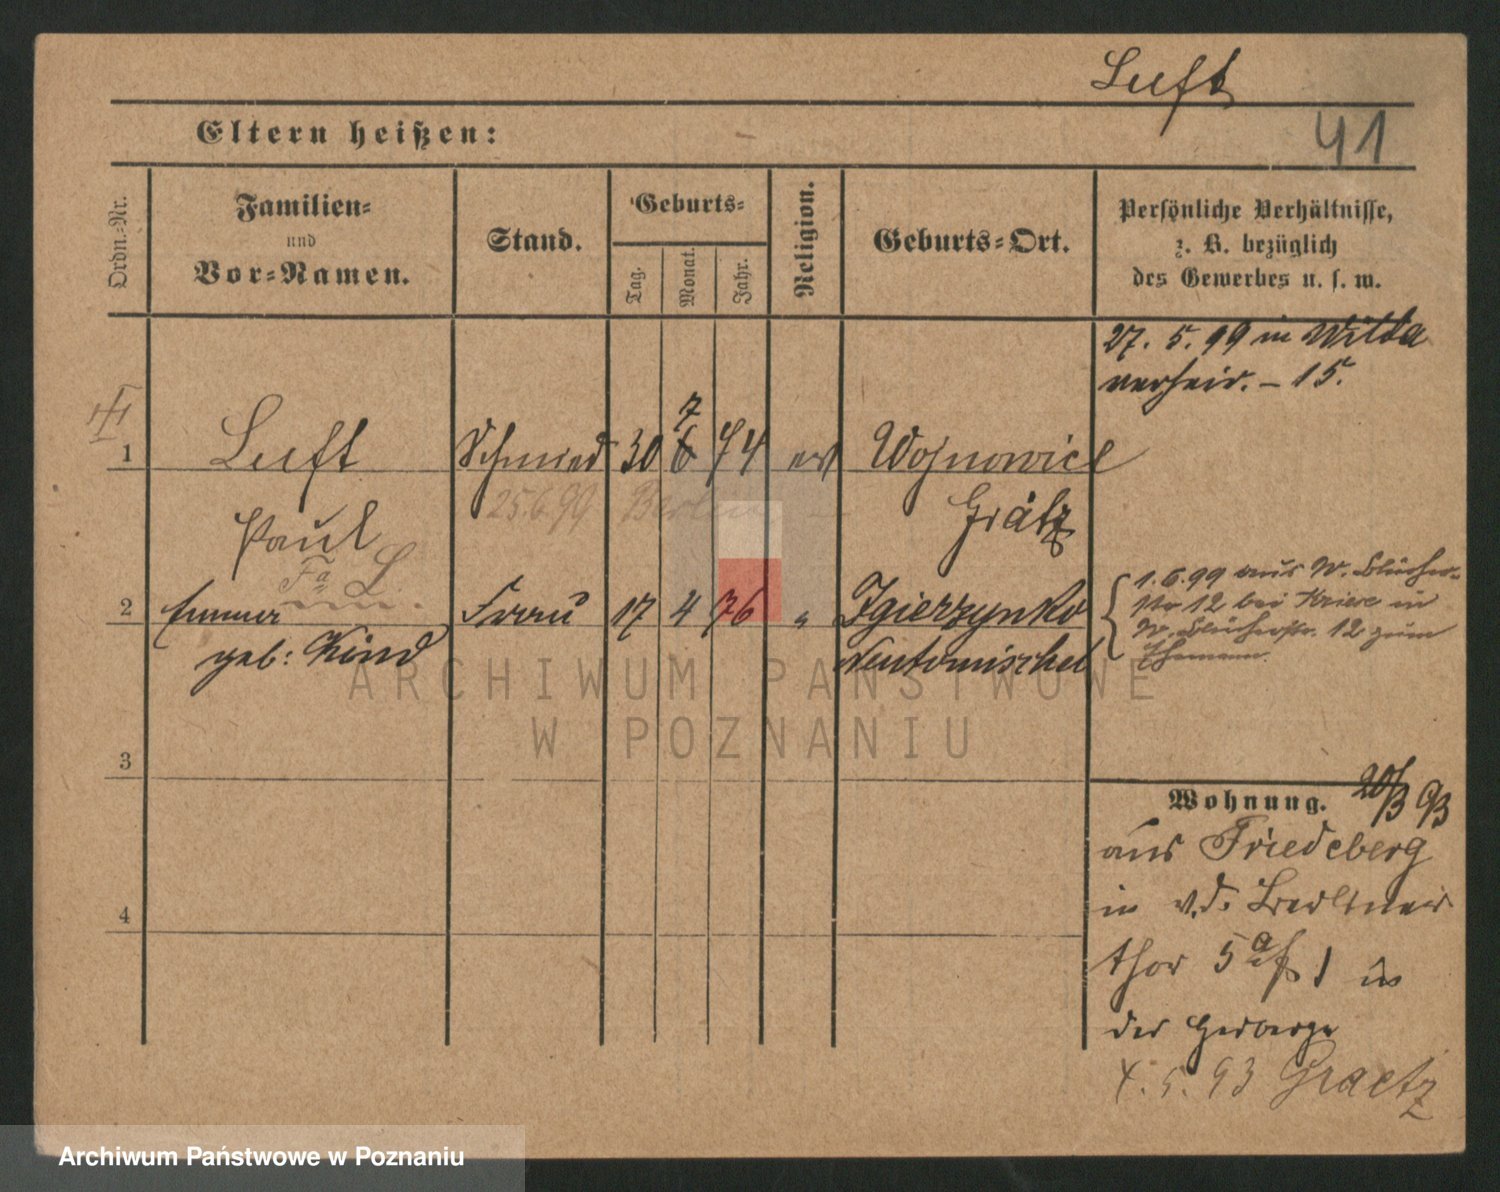 Luft
41
Eltern heißen:
Ordn.-Nr.
Familien-
und
Vor-Namen.
Stand.
Geburts-
Tag.
Monat.
Jahr.
Religion.
Geburts-Ort.
Persönliche Verhältnisse,
z. B. bezüglich
des Gewerbes u. s. w.
27. 5. 99 in Wilda
verheir. – 15.
1 Luft Schmied 30 6 7 74 ev Wojnowice
Paul 25.6.99 Berlin Grätz
Fa L.
2 Emma Frau 17 4 76 " Zgierzynko
geb: Kind Neutomischel
1.6.99 aus W. Blücher-
str 12 bei Kriese in
W. Blücherstr. 12 zum
Ehemann.
3
4
Wohnung. 20/3 93
aus Friedeberg
in v.d. Berliner
thor 5a 1 in
der Herberge
4. 5. 93 Graetz
ARCHIWUM PAŃSTWOWE
W POZNANIU
Archiwum Państwowe w Poznaniu